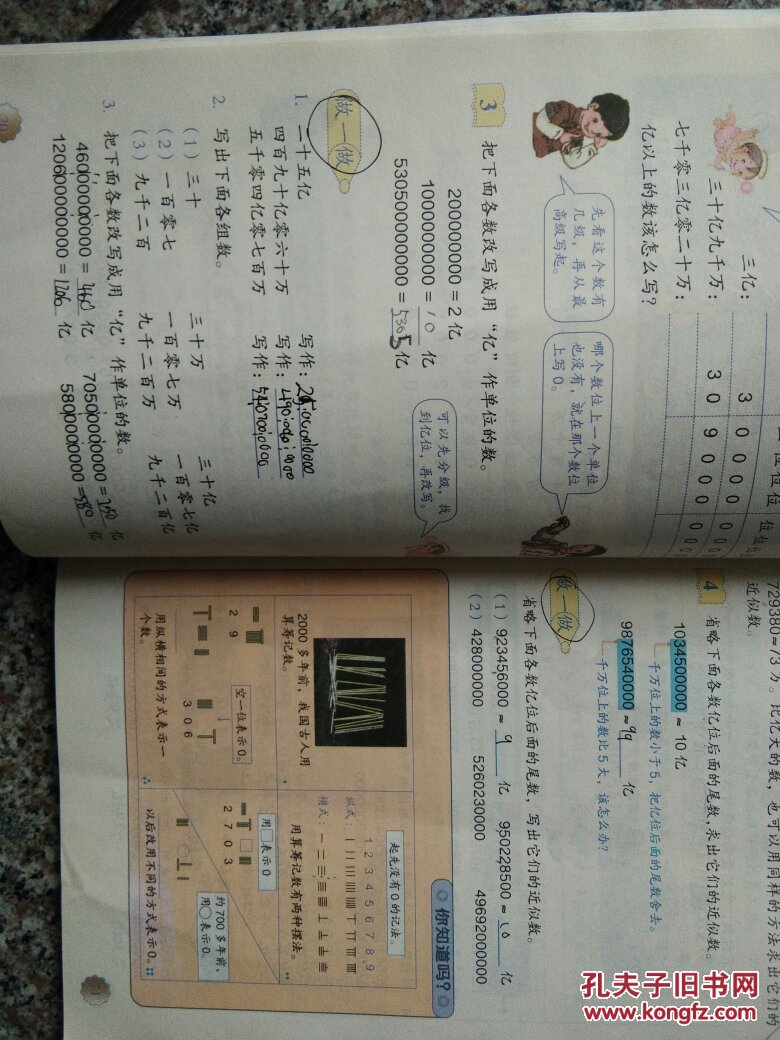 三亿：
三十亿九千万：
七千零三亿零二十万：
亿以上的数该怎么写？
3 0 0 0 0 0 0
3 0 9 0 0 0 0 0
先看这个数有
几级，再从最
高级写起。
哪个数位上一个单位
也没有，就在那个数位
上写0。
3 把下面各数改写成用“亿”作单位的数。
200000000 = 2 亿
1000000000 = 10 亿
530500000000 = 5305 亿
可以先分级，找
到亿位，再改写。
做一做
1. 二十五亿 写作：
四百九十亿零六十万 写作：
五千零四亿零七百万 写作：
2. 写出下面各组数。
（1）三十 三十万 三十亿
（2）一百零七 一百零七万 一百零七亿
（3）九千二百 九千二百万 九千二百亿
3. 把下面各数改写成用“亿”作单位的数。
46000000000 = 460 亿 705000000000 = 亿
120600000000 = 1206 亿 58000000000 = 580 亿
729380≈73 万。比亿大的数，也可以用同样的方法求出它们的
近似数。
4 省略下面各数亿位后面的尾数，求出它们的近似数。
1034500000 ≈ 10 亿
千万位上的数小于5，把亿位后面的尾数舍去。
9876540000 ≈ 99 亿
千万位上的数比5大，该怎么办？
做一做
省略下面各数亿位后面的尾数，写出它们的近似数。
（1）923456000 ≈ 9 亿 950228500 ≈ 10 亿
（2）428000000 5260230000 49692000000
你知道吗？
2000 多年前，我国古人用
算筹记数。
起先没有0的记法。
1 2 3 4 5 6 7 8 9
纵式：
横式：
用算筹记数有两种摆法。
2 9
空一位表示0。
3 0 6
用纵横相间的方式表示一
个数。
用□表示0
2 7 0 3
约700多年前，
用〇表示0。
以后改用不同的方式表示0。
孔夫子旧书网
www.kongfz.com